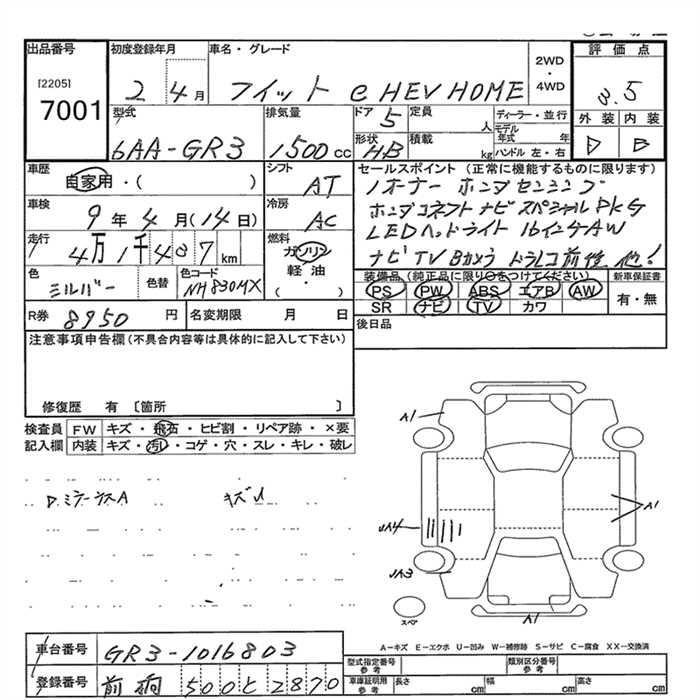 出品番号 初度登録年月 車名・グレード 2WD・4WD 評価点
[2205]
7001 2 4月 フィット e HEV HOME 3.5
型式 排気量 ドア 5 定員 人 ディーラー・並行 外装 内装
6AA-GR3 1500cc 形状 HB 積載 kg モデル年式 年 ハンドル 左・右
車歴 自家用・( ) シフト AT セールスポイント (正常に機能するものに限ります)
1オーナー ホンダセンシング
車検 9年4月(14日) 冷房 AC ホンダコネクト ナビスペシャルPKG
LEDヘッドライト 16インチAW
走行 4万1千 km 燃料 ガソリン 軽油・( ) ナビTV Bカメラ ドラレコ前後 他!
色 シルバー 色替 色コード NH830MX 装備品 (純正品に限り○をつけてください) 新車保証書
PS PW ABS エアB AW 有・無
SR ナビ TV カワ
R券 8950円 名変期限 月 日 後日品
注意事項申告欄 (不具合内容等は具体的に記入して下さい)
修復歴 有 〔箇所 〕
検査員 FW キズ・飛石・ヒビ割・リペア跡・×要
記入欄 内装 キズ・汚レ・コゲ・穴・スレ・キレ・破レ
キズ
A1
A1
A1
スペア
A-キズ E-エクボ U-凹み W-補修跡 S-サビ C-腐食 XX-交換済
車台番号 GR3-1016803
登録番号 500 2870
型式指定番号 参考 類別区分番号 参考
車庫証明用 参考 長さ cm 幅 cm 高さ cm